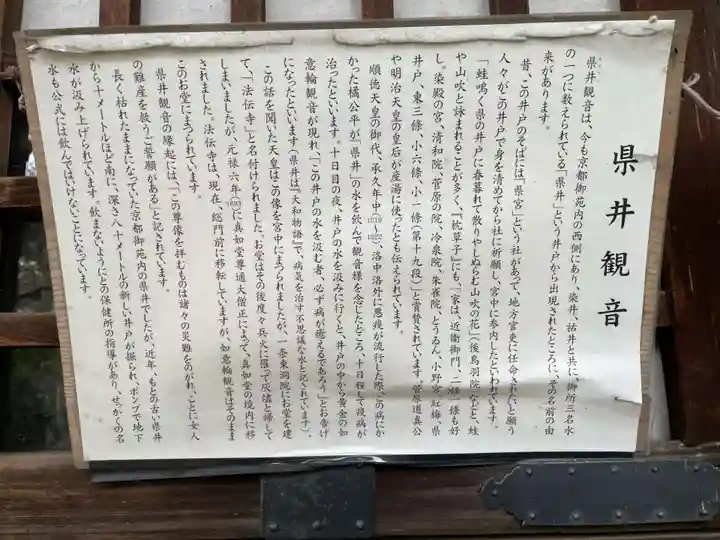 県井観音
県井観音は、今も京都御苑内の西側にあり、染井、祐井と共に、御所三名水
の一つに数えられている「県井」という井戸から出現されたところに、その名前の由
来があります。
昔、この井戸のそばには「県宮」という社があって、地方官吏に任命されたいと願う
人々がこの井戸で身を清めてから社に祈願し、宮中に参内したといわれます。
「蛙鳴く県の井戸に春暮れて散りやしぬらむ山吹の花」(後鳥羽院)などと、蛙
や山吹と詠まれることが多く、『枕草子』にも「家は、近衛御門、二條一條も好
し。染殿の宮、清和院、菅原の院、冷泉院、朱雀院、とうゐん、小野宮、紅梅、県
井戸、東三條、小六條、小一條(第十九段)」と賞賛されています。菅原道真公
や明治天皇の皇后が産湯に使ったとも伝えられています。
順徳天皇の御代、承久年中(1219〜1222)、洛中洛外に悪疫が流行した際、この病にか
かった橘公平が「県井」の水を飲んで観音様を念じたところ、十日程して疫病が
治ったといいます。十日目の夜、井戸の水を汲みに行くと、井戸の中から黄金の如
意輪観音が現れ、「この井戸の水を汲む者、必ず病が癒えるであろう」とお告げ
になったといいます(県井は『大和物語』で、病気を治す不思議な水と記されています)。
この話を聞いた天皇はこの像を宮中にまつられましたが、一条東洞院にお堂を建
て、「法伝寺」と名付けられました。お堂はその後度々兵火に罹って灰燼と帰して
しまいましたが、元禄六年(1693)に真如堂尊通大僧正によって、真如堂の境内に移
されました。法伝寺は、現在、総門前に移転していますが、如意輪観音はそのまま
このお堂にまつられています。
県井観音の縁起には、「この尊像を拝むものは諸々の災難をのがれ、ことに女人
の難産を救うご誓願がある」と記されています。
長く枯れたままになっていた京都御苑内の県井でしたが、近年、もとの古い県井
から十メートルほど南に、深さ八十メートルの新しい井戸が掘られ、ポンプで地下
水が汲み上げられています。飲まないようにとの保健所の指導があり、せっかくの名
水も公式には飲んではいけないことになっています。